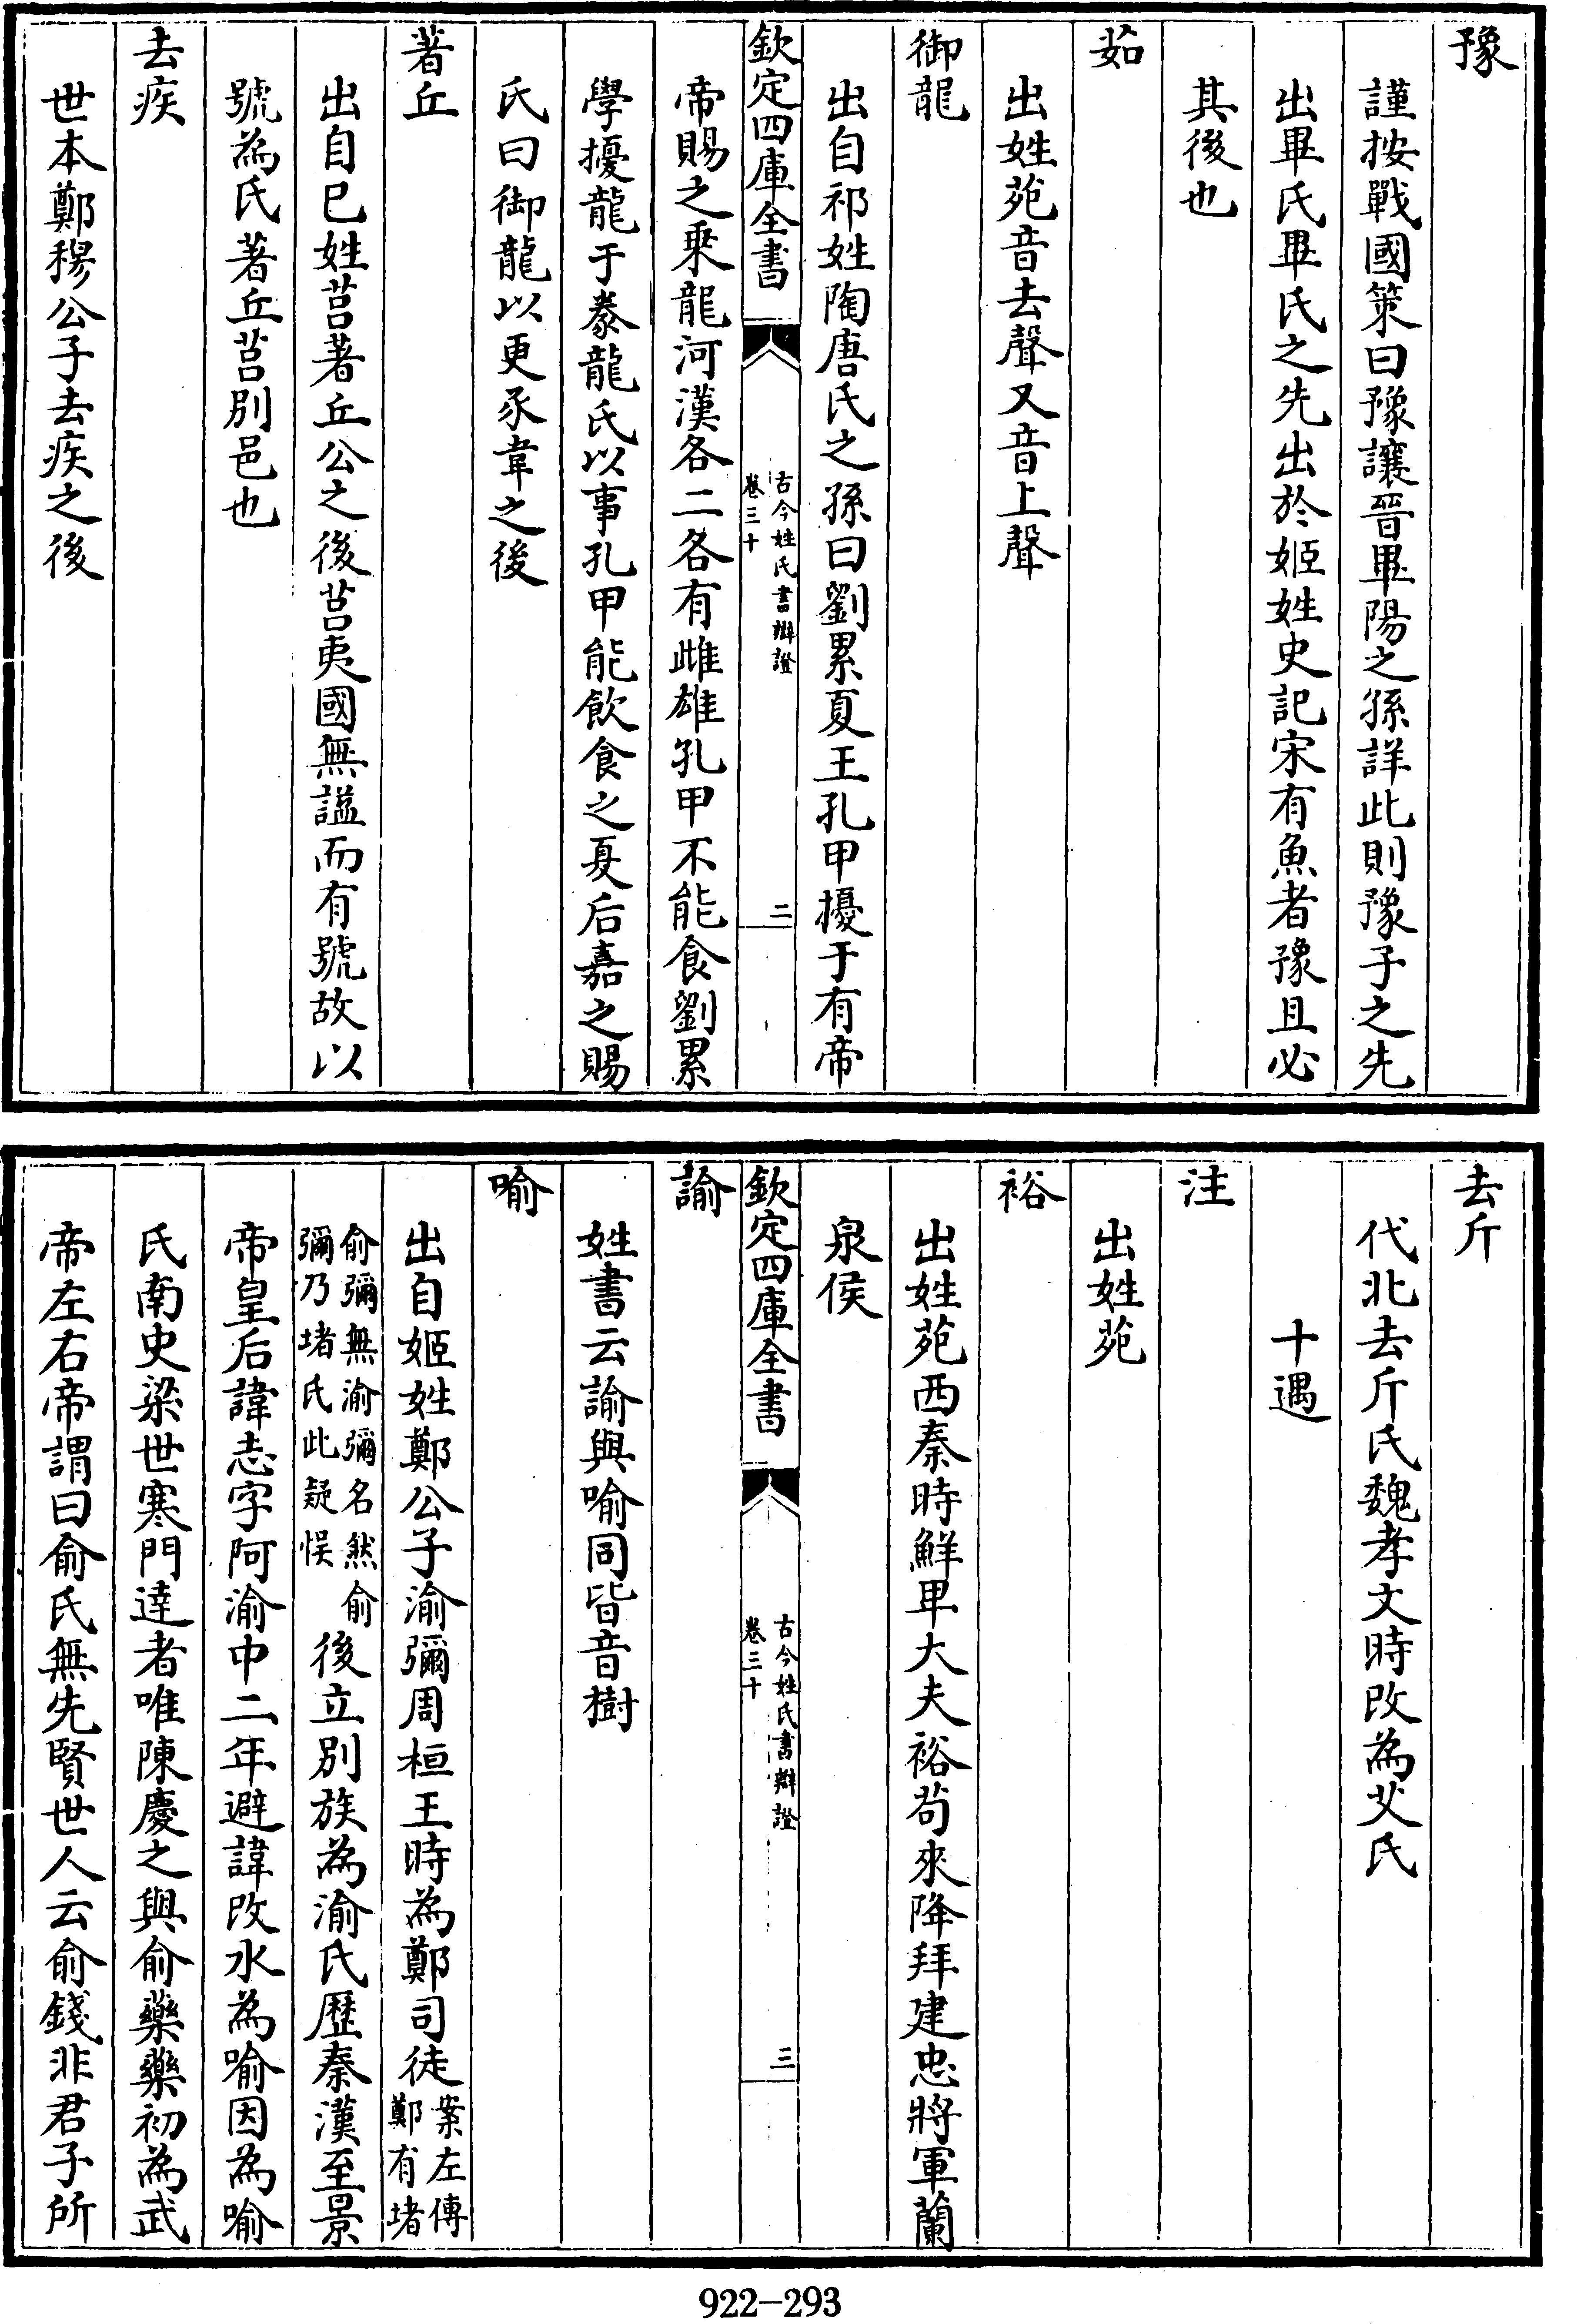 豫
謹按戰國策曰豫讓晉畢陽之孫詳此則豫子之先
出畢氏畢氏之先出於姬姓史記宋有魚者豫且必
其後也
茹
出姓苑音去聲又音上聲
御龍
出自祁姓陶唐氏之孫曰劉累夏王孔甲擾于有帝
欽定四庫全書
古今姓氏書辯證
卷三十
二
帝賜之乘龍河漢各二各有雌雄孔甲不能食劉累
學擾龍于豢龍氏以事孔甲能飲食之夏后嘉之賜
氏曰御龍以更豕韋之後
著丘
出自巳姓莒著丘公之後莒夷國無諡而有號故以
號為氏著丘莒別邑也
去疾
世本鄭穆公子去疾之後
去斤
代北去斤氏魏孝文時改為艾氏
十遇
注
出姓苑
裕
出姓苑西秦時鮮卑大夫裕苟來降拜建忠將軍蘭
泉侯
欽定四庫全書
古今姓氏書辯證
卷三十
三
諭
姓書云諭與喻同皆音樹
喻
出自姬姓鄭公子渝彌周桓王時為鄭司徒案左傳鄭有堵
俞彌無渝彌名然俞彌乃堵氏此疑悞後立別族為渝氏歷秦漢至景
帝皇后諱志字阿渝中二年避諱改水為喻因為喻
氏南史梁世寒門達者唯陳慶之與俞藥藥初為武
帝左右帝謂曰俞氏無先賢世人云俞錢非君子所
922-293